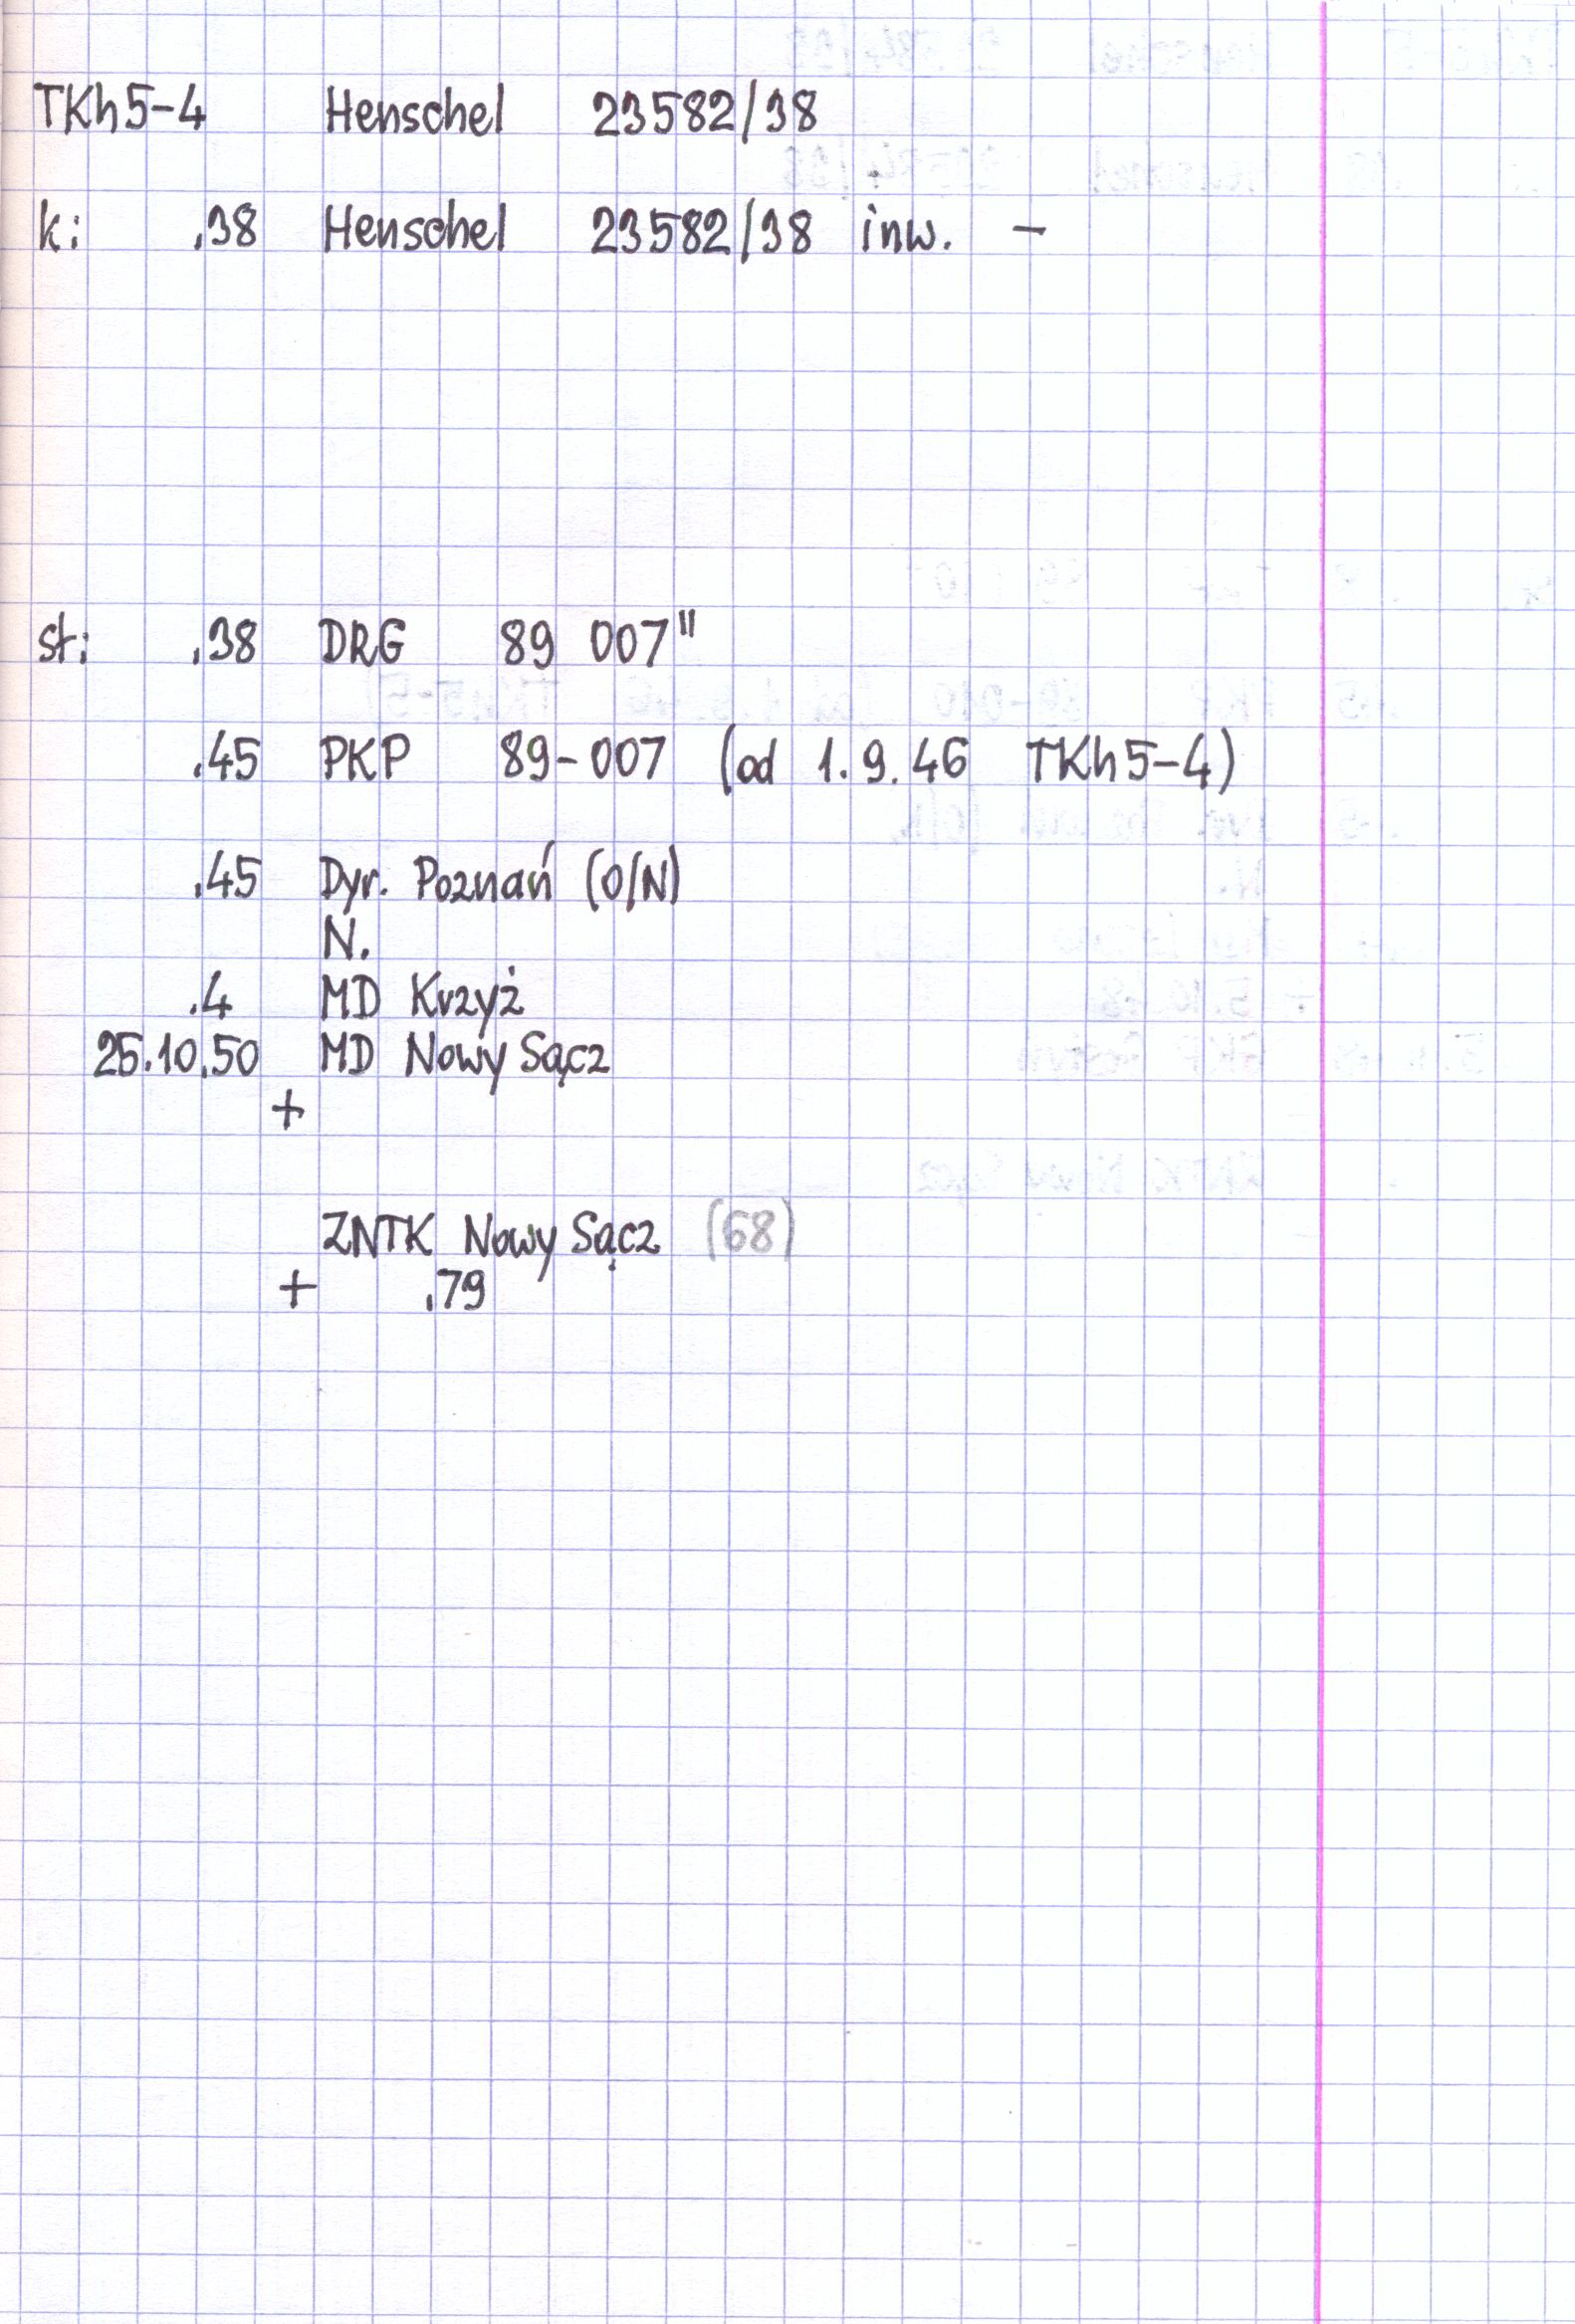 TKh5-4 Henschel 23582/38
k: .38 Henschel 23582/38 inw. -
st: .38 DRG 89 007"
.45 PKP 89-007 (od 1.9.46 TKh5-4)
.45 Dyr. Poznań (O/N)
N.
.4 MD Krzyż
25.10.50 MD Nowy Sącz
+
ZNTK Nowy Sącz (68)
+ .79